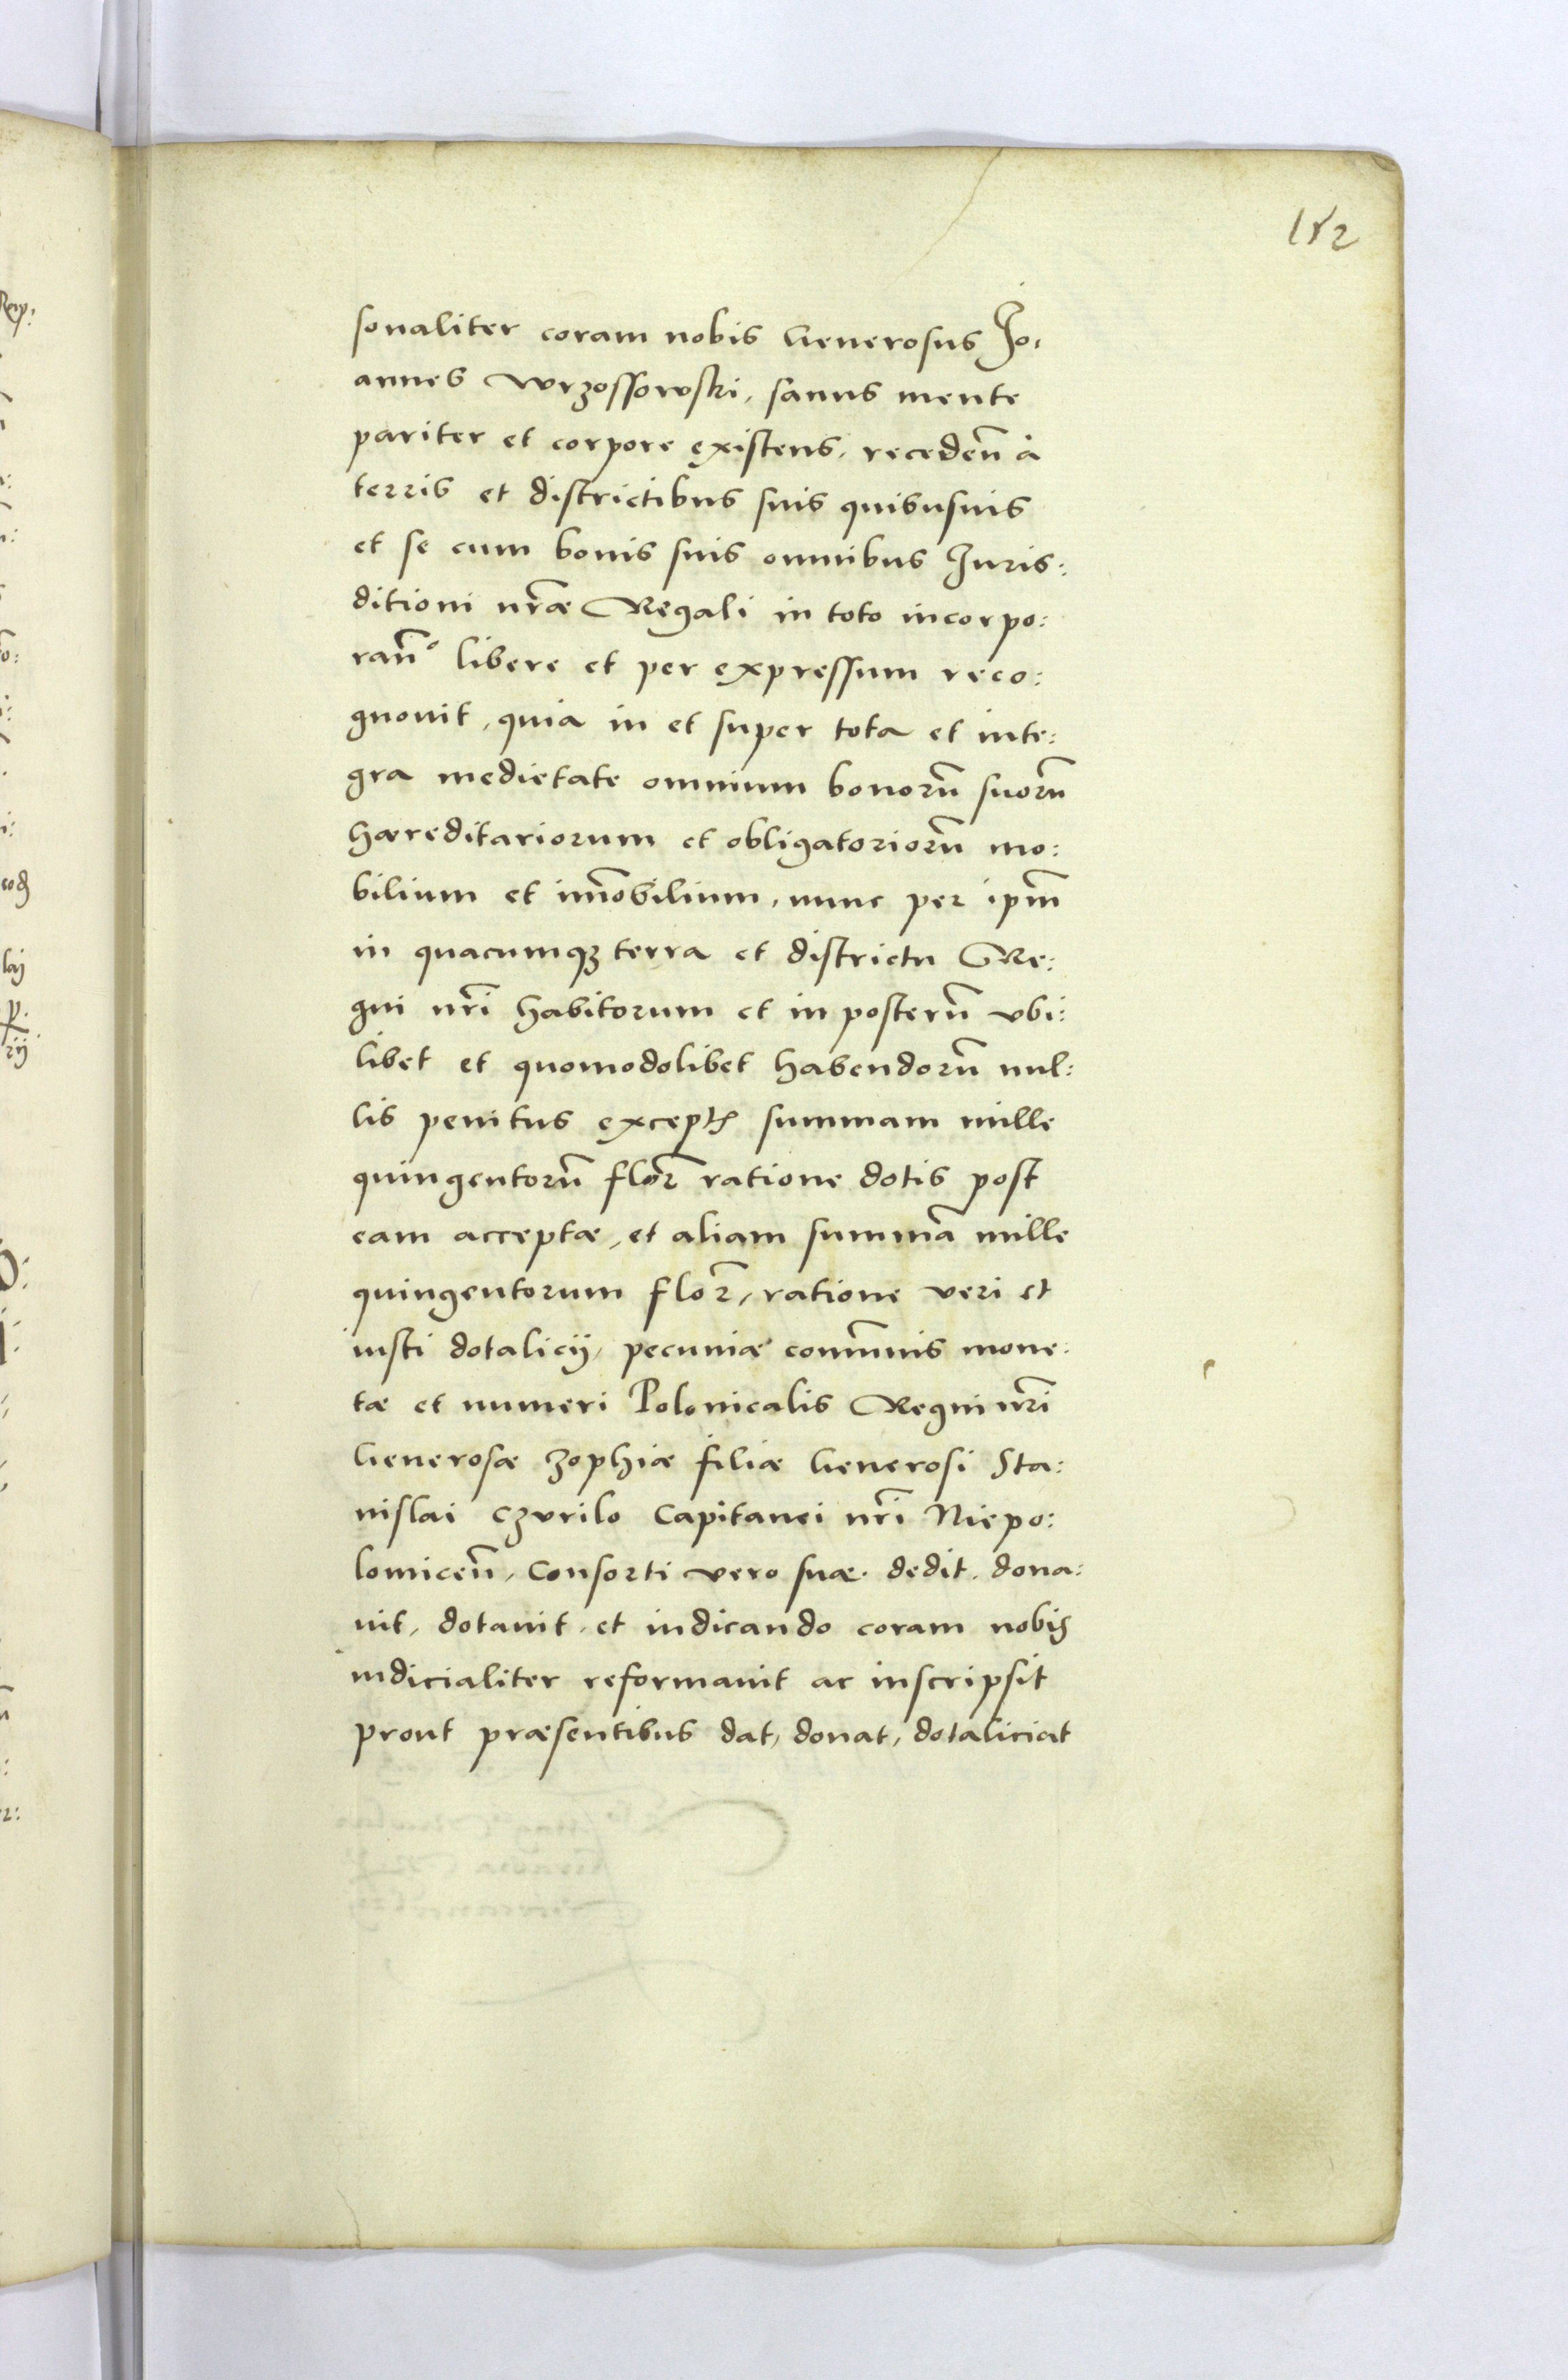 182
sonaliter coram nobis Generosus Jo:
annes Wrzossowski, sanus mente
pariter et corpore existens, recedeñ à
terris et districtibus suis quibusuis
et se cum bonis suis omnibus Juris:
ditioni nr̃æ Regali in toto incorpo:
rañ° libere et per expressum reco:
gnouit, quia in et super tota et inte:
gra medietate omnium bonorũ suorũ
hæreditariorum et obligatoriorũ mo:
bilium et im̃obilium, nunc per ipm̃
in quacumqȝ terra et districtu Re:
gni nr̃i habitorum et in posterũ vbi:
libet et quomodolibet habendorũ nul:
lis penitus exceptꝭ summam mille
quingentorũ flor̃ ratione dotis post
eam acceptæ, et aliam summã mille
quingentorum flor̃, ratione veri et
iusti dotalicij, pecuniæ com̃unis mone:
tæ et numeri Polonicalis Regni nr̃i
Generosæ Zophiæ filiæ Generosi Sta:
nislai Czvrilo Capitanei nr̃i Niepo:
lomiceñ, Consorti vero suæ. dedit. dona:
uit, dotauit, et indicando coram nobis
iudicialiter reformauit ac inscripsit
prout præsentibus dat, donat, dotaliciat